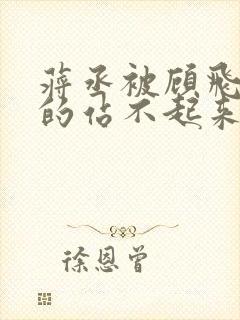 蒋丞被顾飛
的佔不起来
徐恩曾